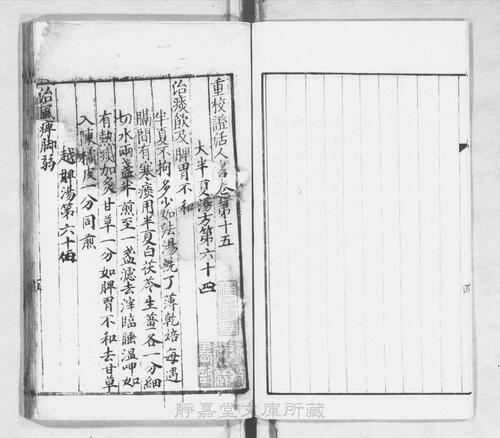 重校證活人書卷第十五
大半夏湯方第六十四
治痰飲及脾胃不和
半夏不拘多少如法湯洗了薄乾焙每遇
膈間有寒痰用半夏白茯苓生薑各一分細
切水兩盞半煎至一盞濾去滓臨睡溫呷如
有熱痰加炙甘草一分如脾胃不和去甘草
入陳橘皮一分同煎
越脾湯第六十伍
治風痺脚弱
靜嘉堂文庫所藏